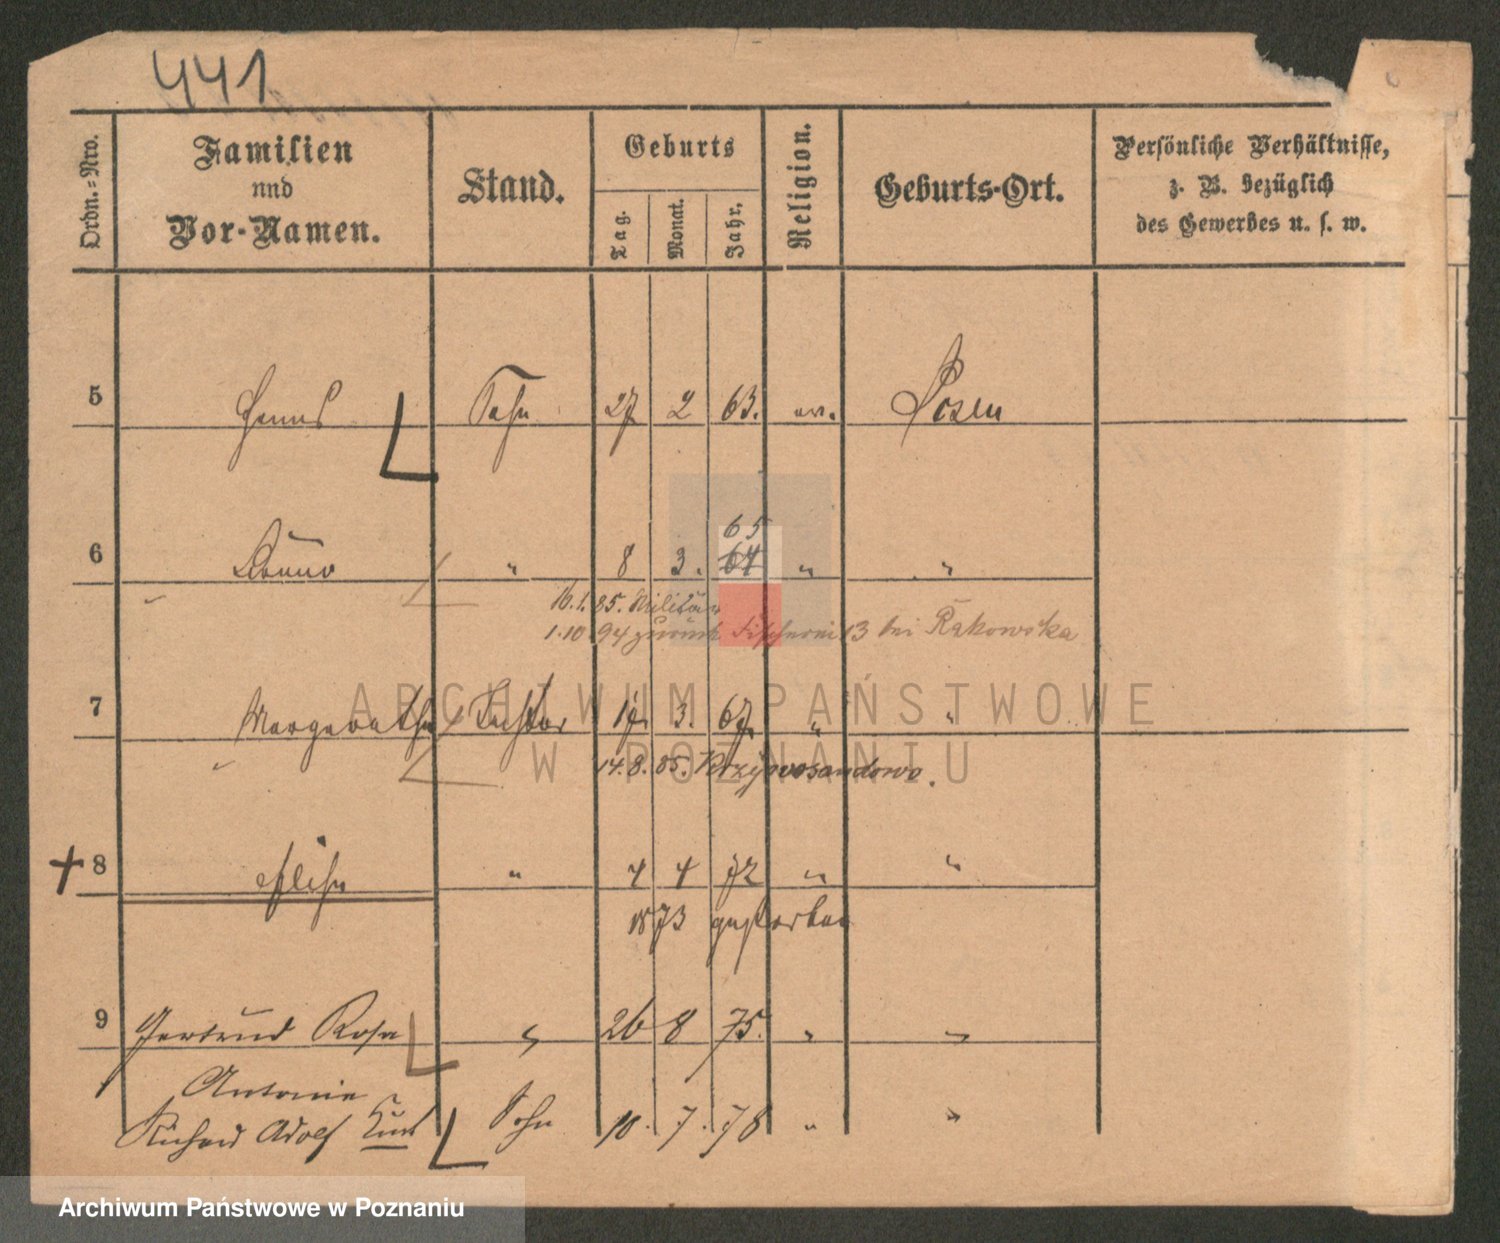 441
Ordn.=Nro.
Familien
und
Vor-Namen.
Stand.
Geburts
Tag.
Monat.
Jahr.
Religion.
Geburts-Ort.
Persönliche Verhältnisse,
z. B. bezüglich
des Gewerbes u. s. w.
5 Hanns Sohn 27 2 63. ev. Posen
65
6 Bruno " 8 3. 64 " "
16.1.85. Militär
1.10.94 zurück Fischerei 13 bei Rakowska
7 Margarethe Tochter 17. 3. 67. " "
14.8.85.
8 " 4 4 72 " "
1873 gestorben
9 Gertrud Rosa " 26 8 75. " "
Antonie
Richard Adolf Kurt Sohn 10. 7. 78 " "
ARCHIWUM PAŃSTWOWE
W POZNANIU
Archiwum Państwowe w Poznaniu